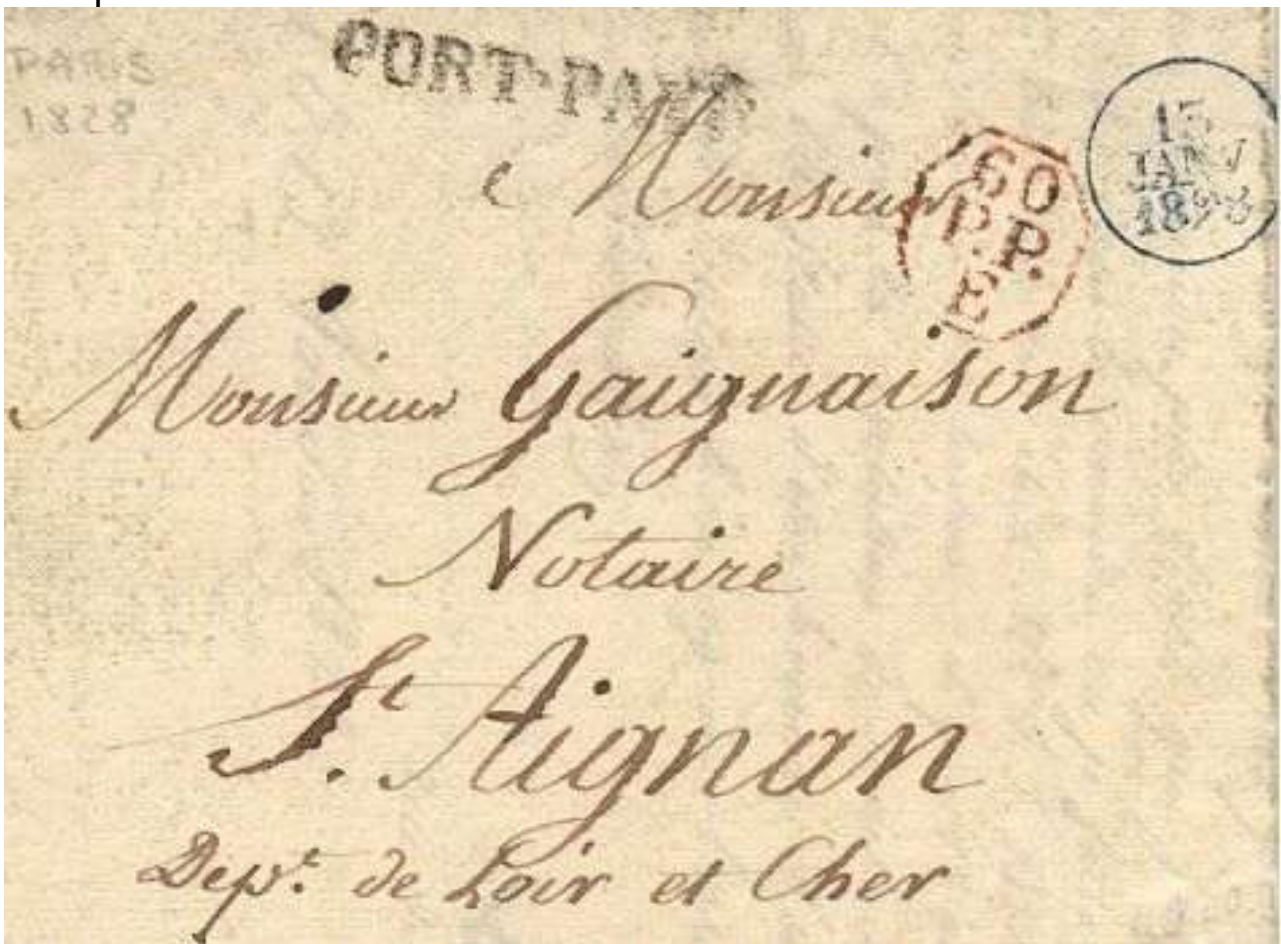 PARIS
1828
PORT-PAYÉ
15
JANV
1828
60
P.P.
E
a Monsieur
Monsieur Gaignaison
Notaire
St. Aignan
Dept. de Loir et Cher